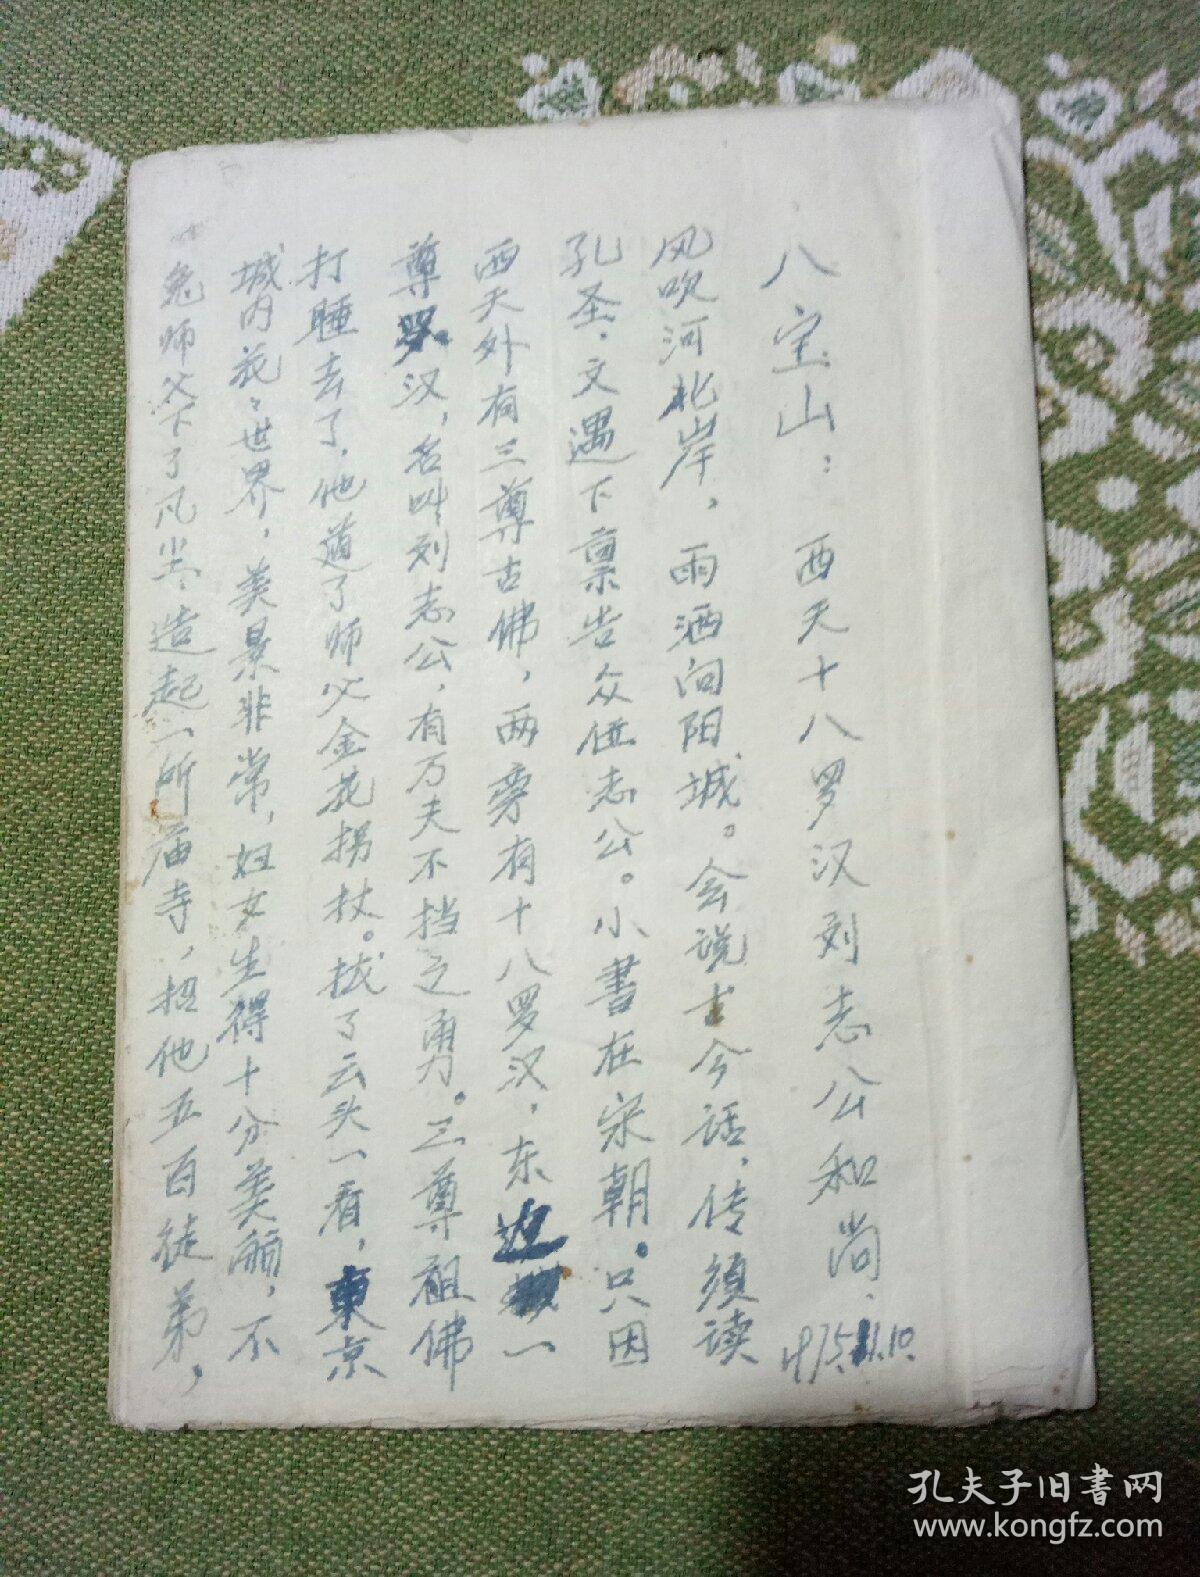 八宝山：西天十八罗汉刘志公和尚．
1975.11.10.
风吹河北岸，雨洒向阳城。会说古今话，传须读
孔圣文遇下禀告众位志公。小書在宋朝。只因
西天外有三尊古佛，两旁有十八罗汉，东边一
尊罗汉，名叫刘志公，有万夫不挡之勇。三尊祖佛
打睡去了，他盗了师父金花拐杖。拔了云头一看，東京
城内花々世界，美景非常，妇女生得十分美丽，不
免师父下了凡尘造起一所庙寺，招他五百徒弟，
孔夫子旧书网
www.kongfz.com